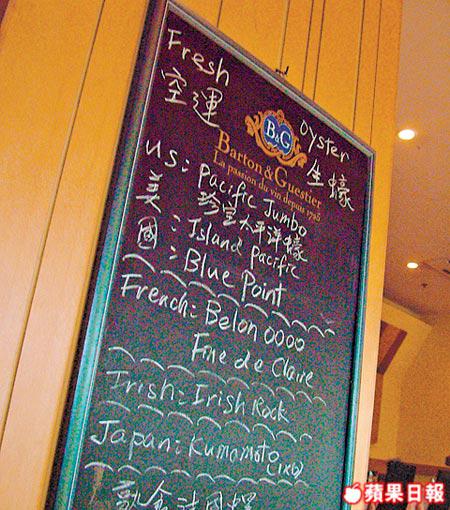 Fresh Oyster
空運 生蠔
B&G
Barton & Guestier
La passion du vin depuis 1725
US: Pacific Jumbo
珍宝太平洋蠔
美國: Island Pacific
: Blue Point
French: Belon 0000
Fine de Claire
Irish: Irish Rock
Japan: Kumomoto
蘋果日報